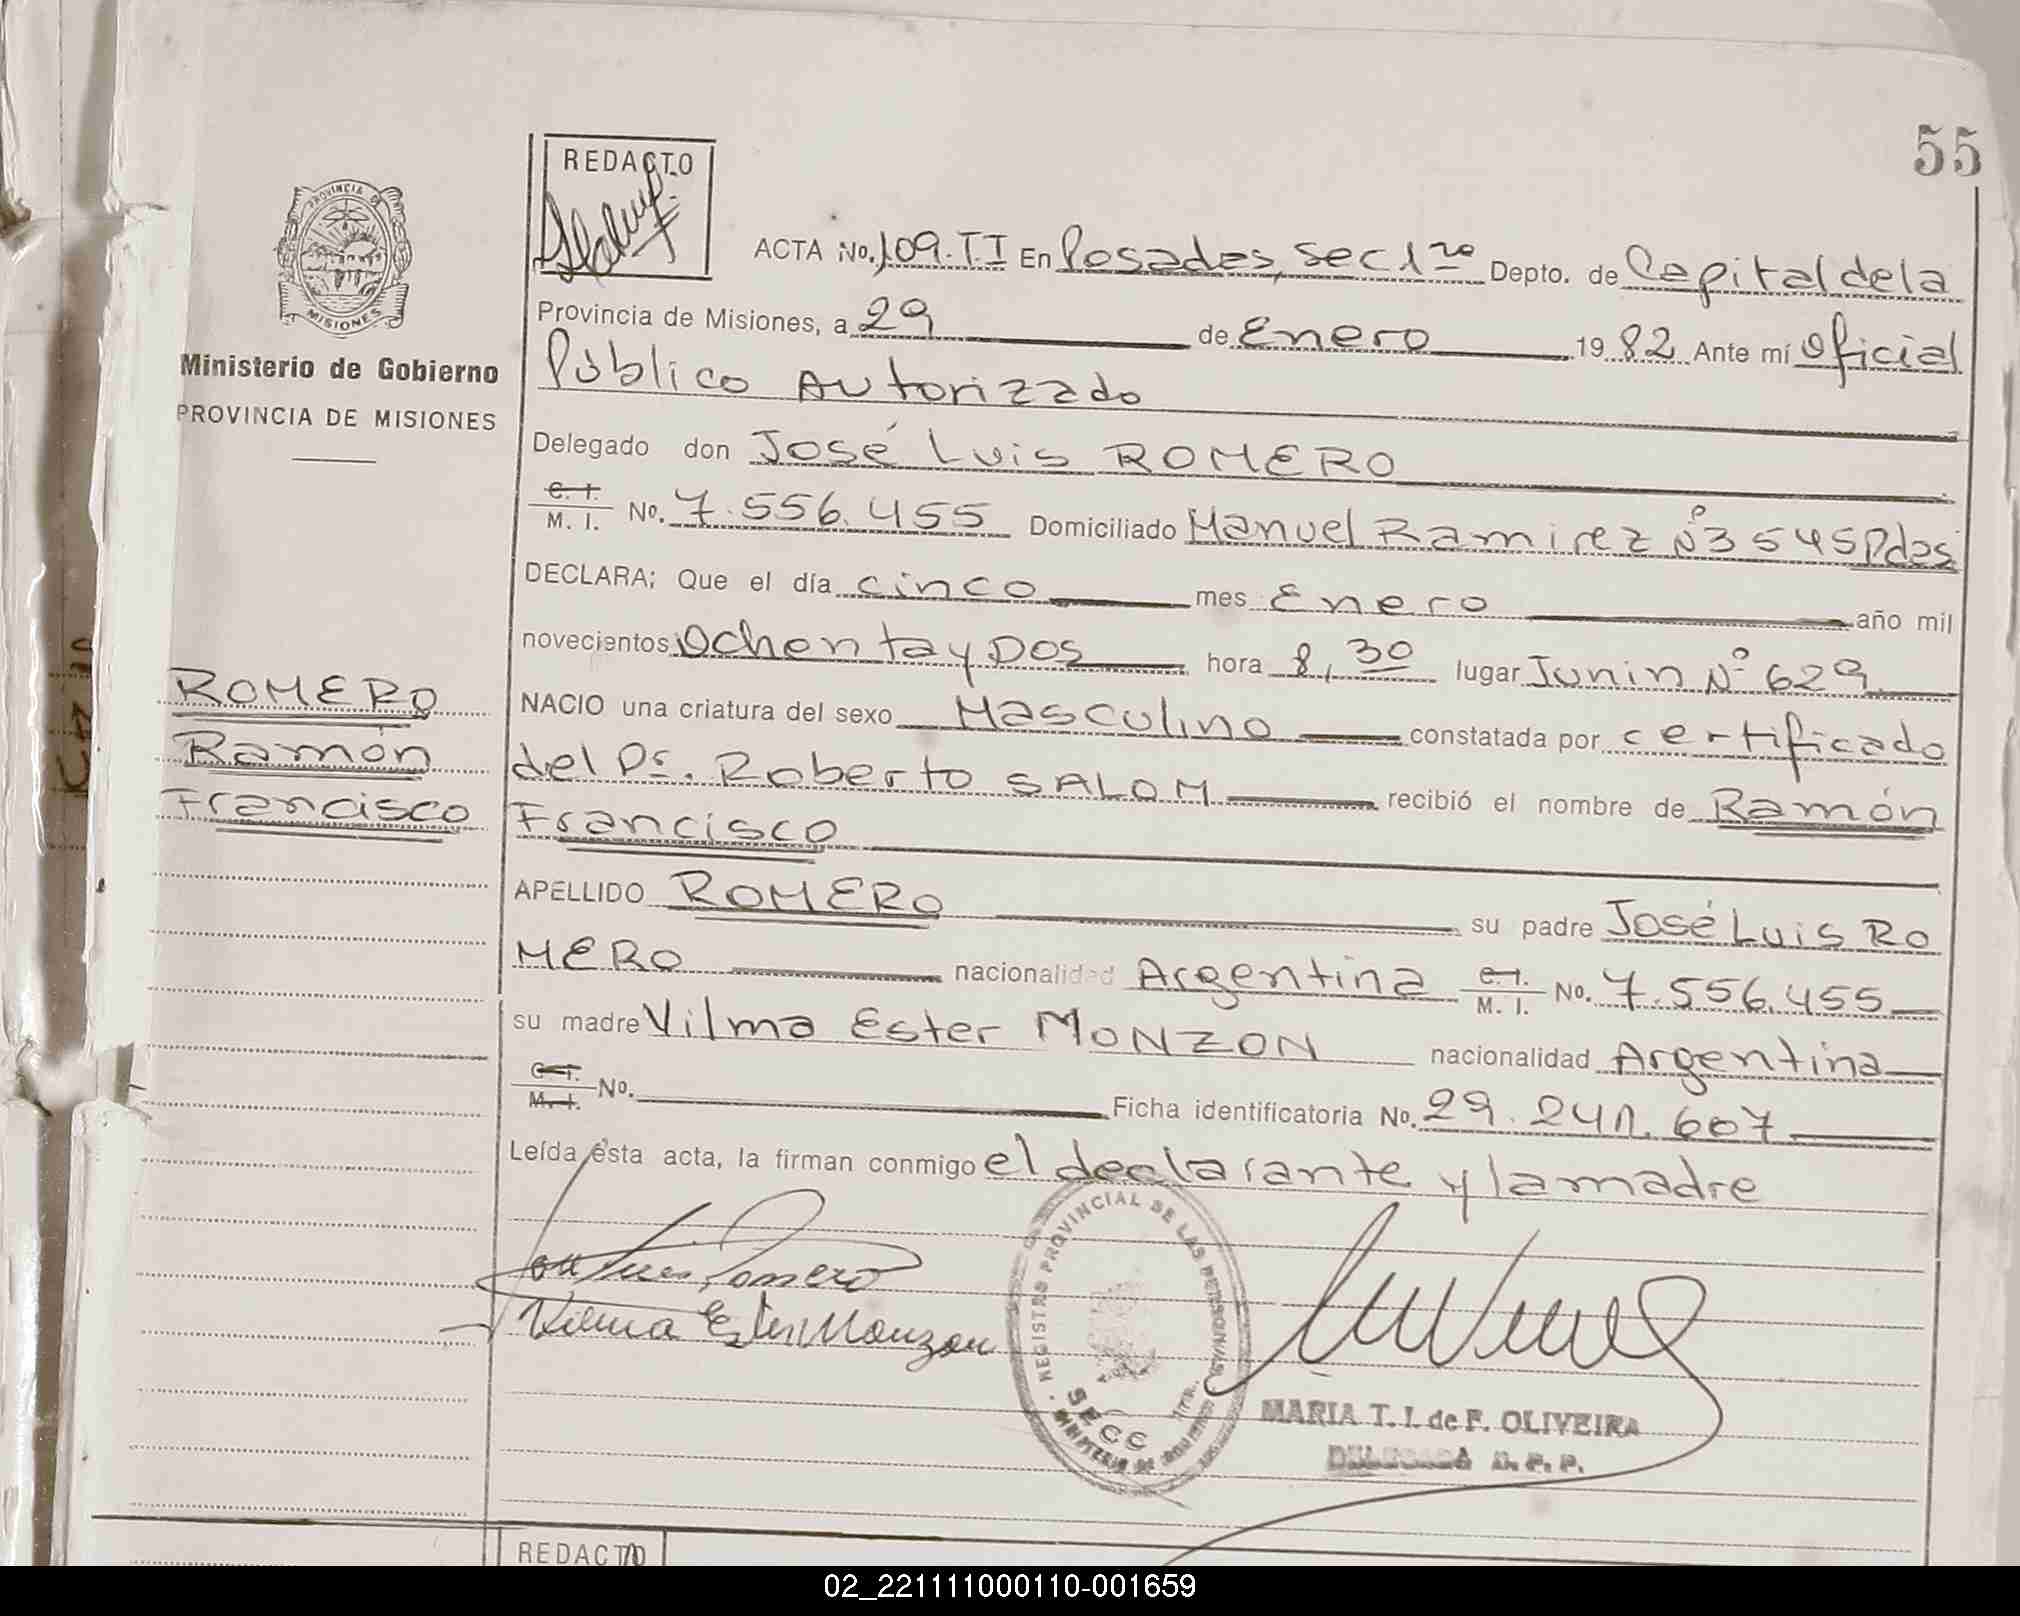 55
REDACTO
PROVINCIA DE
MISIONES
Ministerio de Gobierno
PROVINCIA DE MISIONES
ACTA No. 109.TI En Posadas, sec 1ra Depto. de Capital de la
Provincia de Misiones, a 29 de Enero 1982 Ante mí Oficial
Público Autorizado
Delegado don José Luis ROMERO
C. I.
M. I. No. 7.556.455 Domiciliado Manuel Ramirez Nº 3545 Pdas
DECLARA; Que el día cinco mes Enero año mil
novecientos Ochenta y Dos hora 8,30 lugar Junin Nº 629
NACIO una criatura del sexo Masculino constatada por certificado
del Dr. Roberto SALOM recibió el nombre de Ramón
Francisco
APELLIDO ROMERO su padre José Luis RO
MERO nacionalidad Argentina C. I.
M. I. No. 7.556.455
su madre Vilma Ester MONZON nacionalidad Argentina
C. I.
M. I. No. Ficha identificatoria No. 29.241.607
Leída esta acta, la firman conmigo el declarante y la madre
ROMERO
Ramón
Francisco
José Luis Romero
Vilma Ester Monzon
REGISTRO PROVINCIAL DE LAS PERSONAS
SECC
MARIA T. I. de F. OLIVEIRA
DELEGADA R. P. P.
REDACTO
02_221111000110-001659